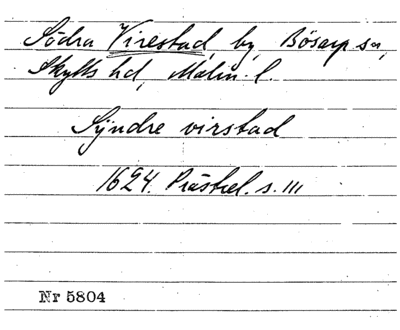 Södra Virestad, by, Bösarp sn,
Skytts hd, Malm. l.
Syndre virstad
1624. Prästrel. s. 111
Nr 5804